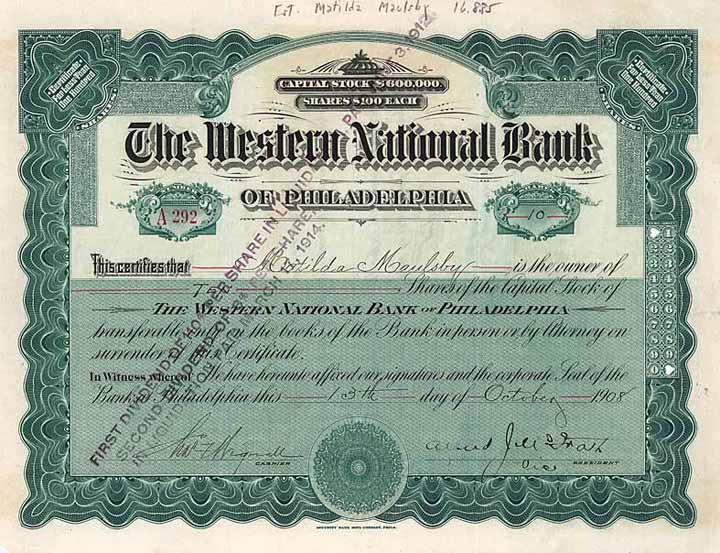 Est. Matilda Maulsby 16.885
Certificate
For Less Than
One Hundred
SHARES
CAPITAL STOCK $600,000.
SHARES $100 EACH
Certificate
For Less Than
One Hundred
SHARES
The Western National Bank
OF PHILADELPHIA
A 292
10
This certifies that Matilda Maulsby is the owner of
Ten Shares of the Capital Stock of
THE WESTERN NATIONAL BANK OF PHILADELPHIA
transferable only on the books of the Bank in person or by Attorney on
surrender of this Certificate.
In Witness whereof We have hereunto affixed our signatures and the corporate Seal of the
Bank at Philadelphia this 13th day of October 1908
CASHIER
Vice PRESIDENT
FIRST DIVIDEND OF PER SHARE IN LIQUID
PA 3, 1912
SECOND DIVIDEND OF PER SHARE
IN LIQUIDATION PAID MARCH 1914.
1
2
3
4
5
6
7
8
9
0
SECURITY BANK NOTE COMPANY, PHILA.